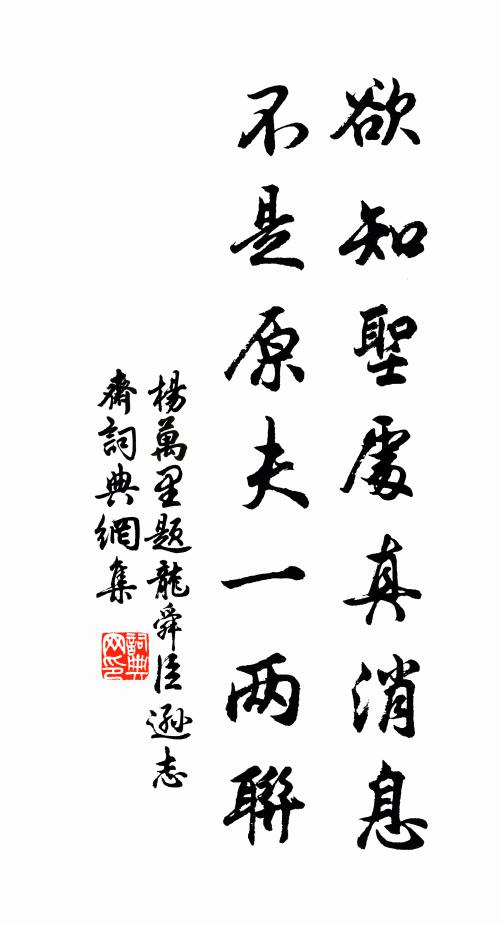 欲知聖處真消息
不是原夫一兩聯
楊萬里題龍舜臣遜志
齋詞典網集
詞典网印